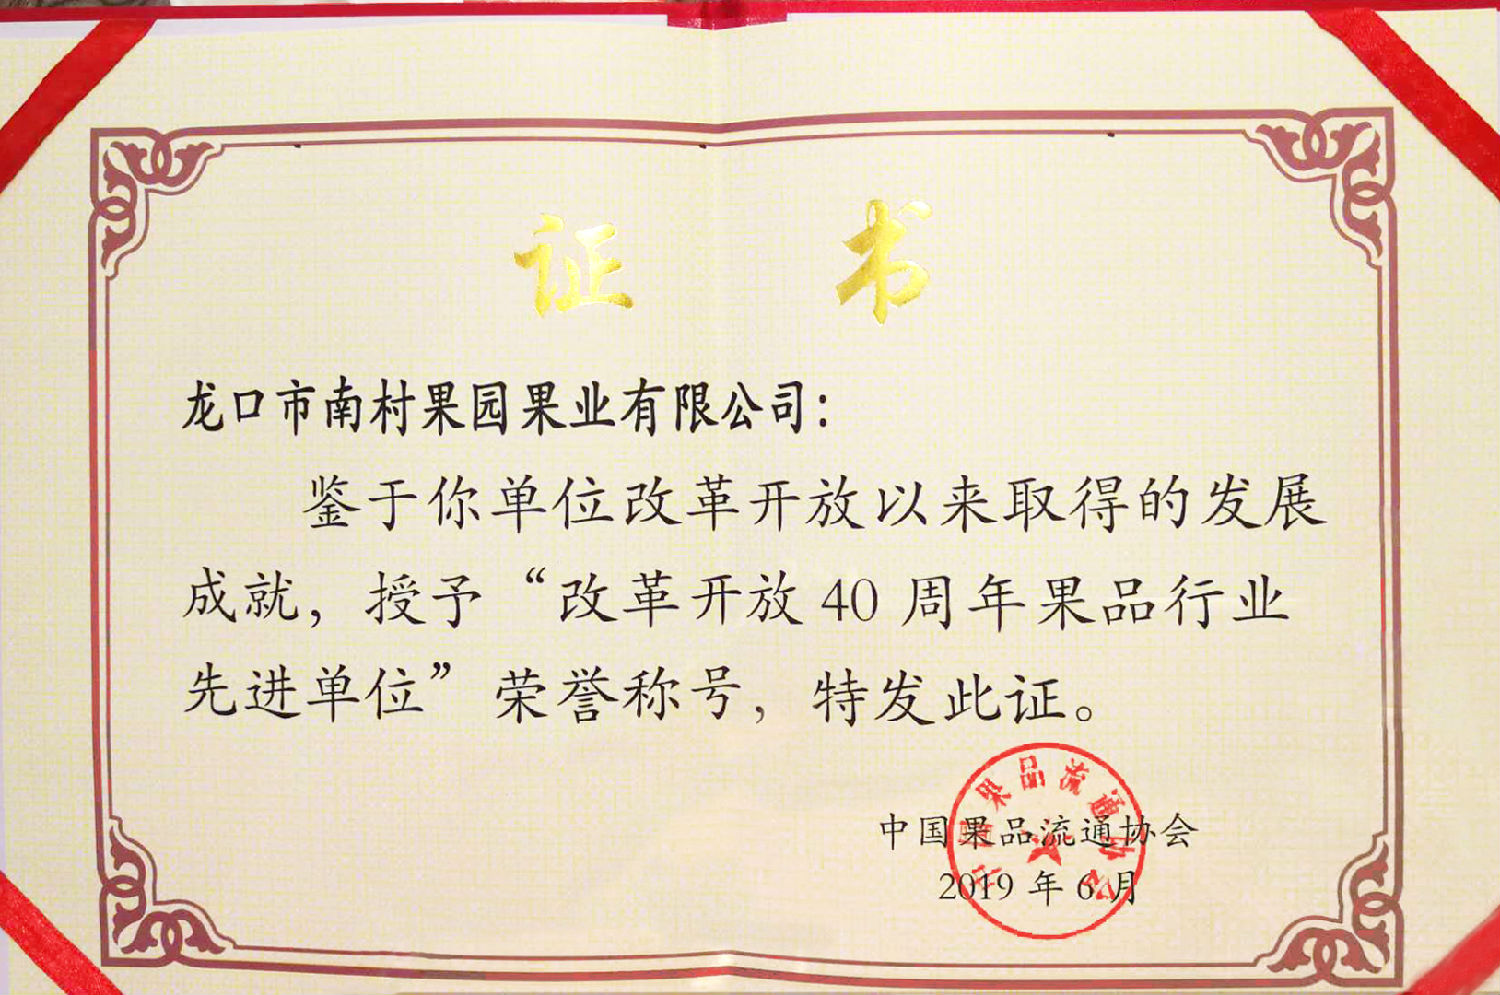 证 书
龙口市南村果园果业有限公司：
鉴于你单位改革开放以来取得的发展
成就，授予“改革开放40周年果品行业
先进单位”荣誉称号，特发此证。
中国果品流通协会
2019年6月
中国果品流通协会